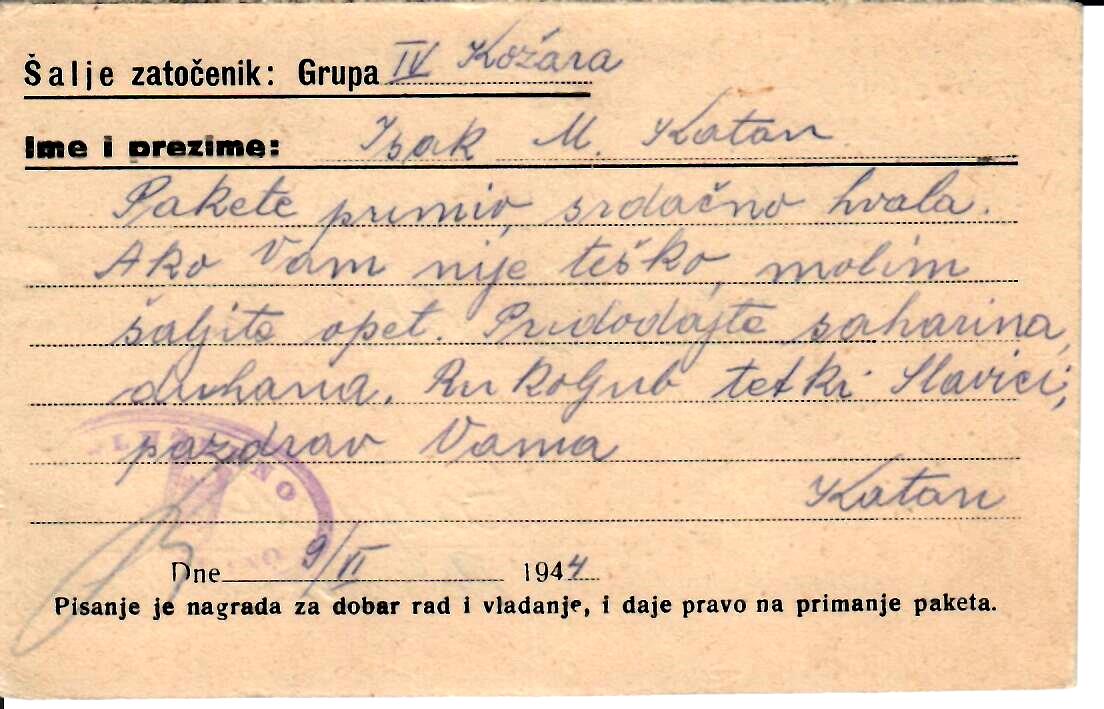 Šalje zatočenik: Grupa IV Kožara
Ime i prezime: Isak M. Katan
Pakete primio, srdačno hvala.
Ako Vam nije teško, molim
šaljite opet. Pridodajte saharina,
duhana. Rukoljub tetki Slavici;
pozdrav Vama
Katan
Dne 9/VI 1944
Pisanje je nagrada za dobar rad i vladanje, i daje pravo na primanje paketa.